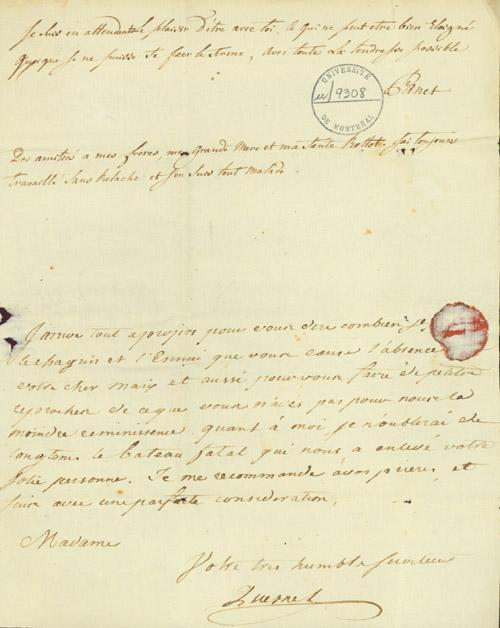 Je suis en attendant le plaisir d'être avec toi, ce qui ne peut être bien Eloigné
quoique je ne puisse te fixer le terme, avec toute la tendresse possible
UNIVERSITÉ
9308
DE MONTRÉAL
Des amitiés a mes freres, ma grande Mere et ma tante j'ai toujours
travaillé sans Relache et j'en suis tout malade.
J'arrive tout apropos pour vous dire combien je
le chagrin et l'Ennui que vous cause l'absence
votre cher mary et aussi pour vous faire de petites
reproches de ce que vous n'aiés pas pour nous la
moindre reminissence quant à moi je n'oublirai de
longtems le bateau fatal qui nous a enlevé votre
jolie personne. Je me recommande avos prieres, et
suis avec une parfaite consideration,
Madame
Votre tres humble serviteur
Quesnel